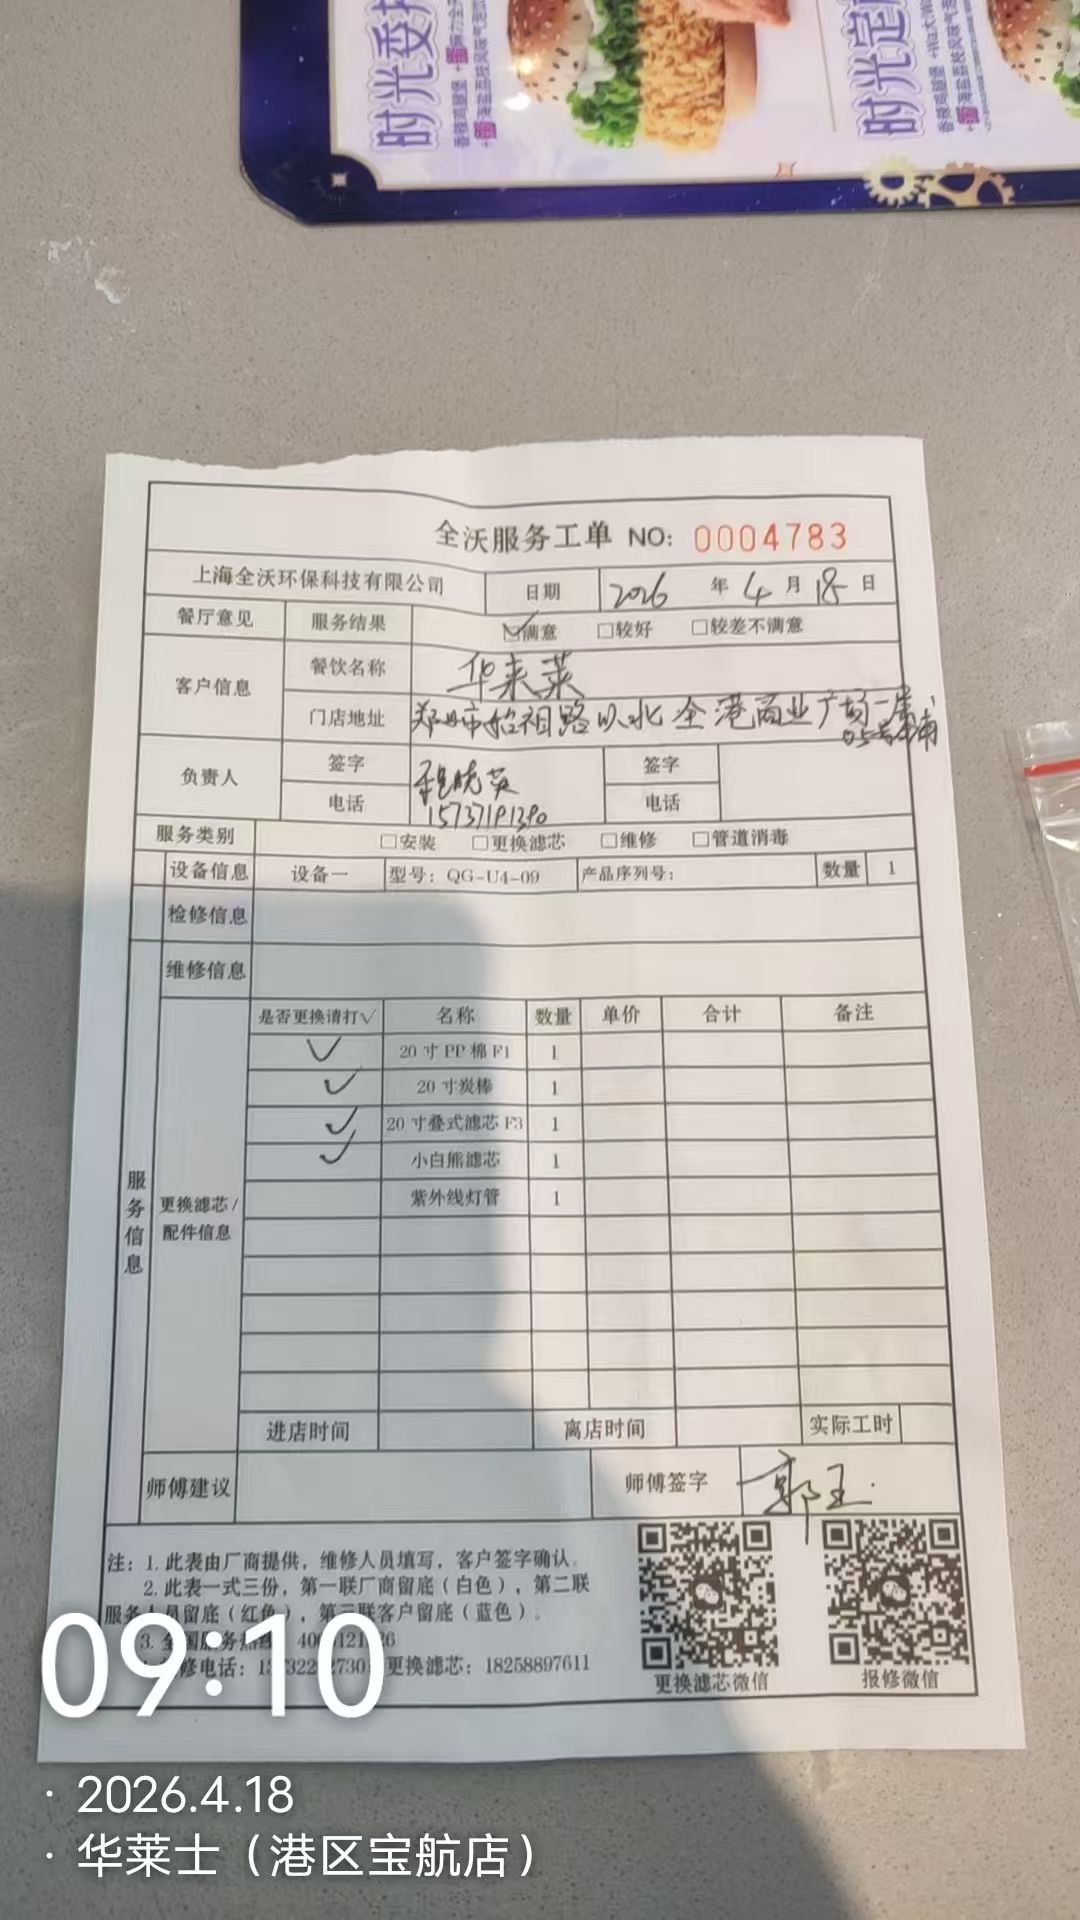 时光委托
时光定
全沃服务工单 NO: 0004783
上海全沃环保科技有限公司 日期 2026 年 4 月 18 日
餐厅意见 服务结果 ☑满意 □较好 □较差不满意
客户信息 餐饮名称 华来莱
门店地址 郑州市始祖路以北 全港商业广场一层
05号商铺
负责人 签字 程晓英 签字
电话 15737191390 电话
服务类别 □安装 □更换滤芯 □维修 □管道消毒
设备信息 设备一 型号：QG-U4-09 产品序列号： 数量 1
检修信息
维修信息
服务信息
更换滤芯/
配件信息
是否更换请打√ 名称 数量 单价 合计 备注
✓ 20 寸 PP 棉 F1 1
✓ 20 寸炭棒 1
✓ 20 寸叠式滤芯 F3 1
✓ 小白熊滤芯 1
紫外线灯管 1
进店时间 离店时间 实际工时
师傅建议 师傅签字 郭王
注：1. 此表由厂商提供，维修人员填写，客户签字确认。
2. 此表一式三份，第一联厂商留底（白色），第二联
服务人员留底（红色），第三联客户留底（蓝色）。
3. 全国服务热线
修电话： 更换滤芯：18258897611
更换滤芯微信 报修微信
09:10
· 2026.4.18
· 华莱士（港区宝航店）